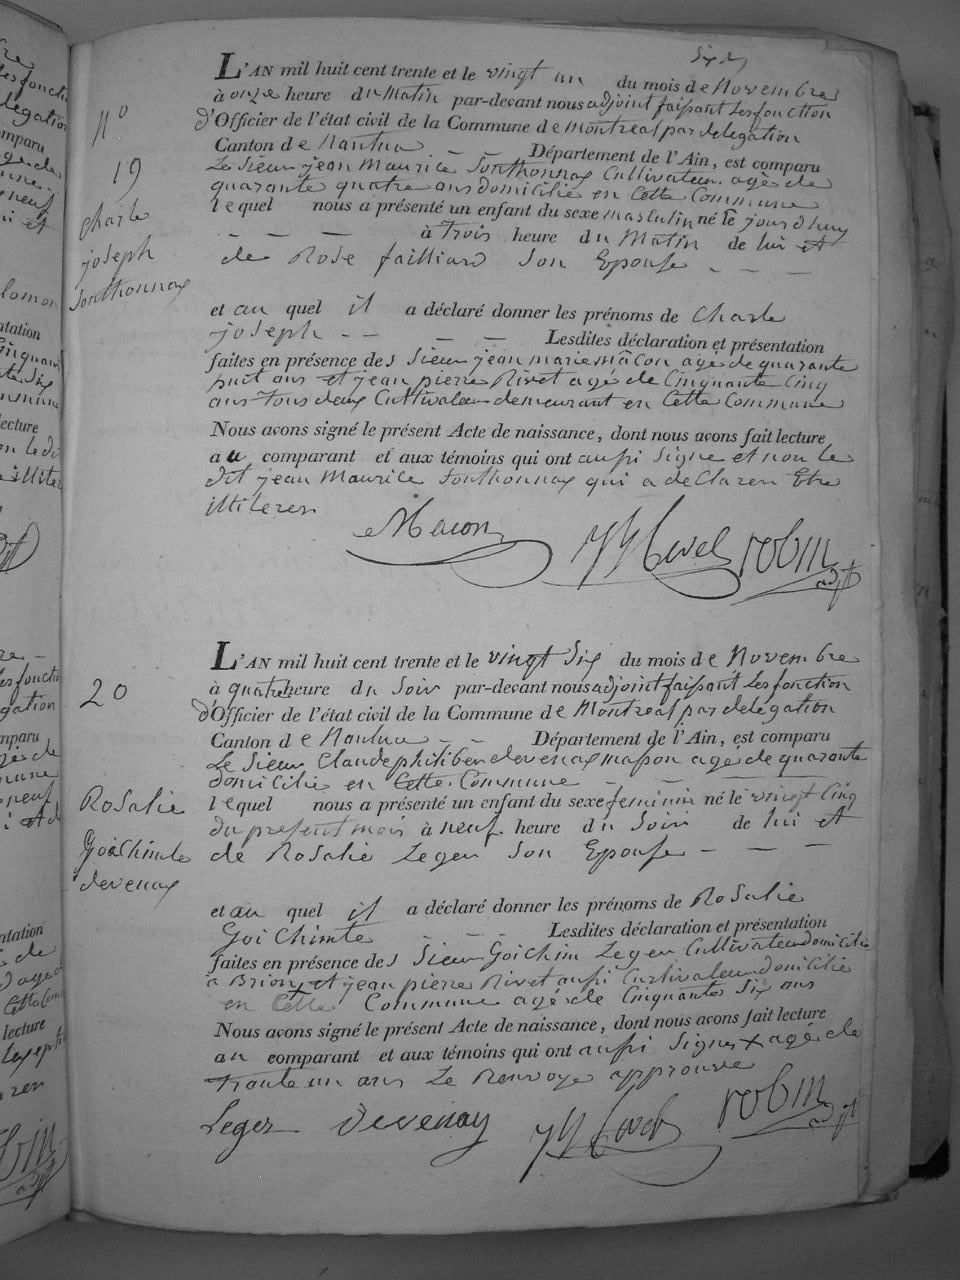 L'AN mil huit cent trente et le vingt un du mois de Novembre
à onze heure du Matin par-devant nous adjoint faisant Les fonction
d'Officier de l'état civil de la Commune de Montreal par delegation
Canton de Nantua - - Département de l'Ain, est comparu
Le Sieur jean Maurice Sonthonnax Cultivateur agé de
quarante quatre ans domicilié en Cette Commune
lequel nous a présenté un enfant du sexe masculin né le jourd'huy
- - - à trois heure du Matin de lui et
de Rose failliard Son Epouse - - -
et au quel il a déclaré donner les prénoms de Charle
joseph - - - - Lesdites déclaration et présentation
faites en présence des Sieur jean marie mâcon agé de quarante
huit ans et jean pierre Rivet agé de Cinquante Cinq
ans tous deux Cultivateur demeurant en Cette Commune
Nous avons signé le présent Acte de naissance, dont nous avons fait lecture
au comparant et aux témoins qui ont aussi Signe et non le
dit jean Maurice Sonthonnax qui a declaren Etre
illiteren
N°
19
Charle
joseph
Sonthonnax
Macon robin
adjt
L'AN mil huit cent trente et le vingt Six du mois de Novembre
à quatre heure du Soir par-devant nous adjoint faisant Les fonction
d'Officier de l'état civil de la Commune de Montreal par delegation
Canton de Nantua - - Département de l'Ain, est comparu
Le Sieur Claude philiber devenax masson agé de quarante
domicilié en Cette Commune -
lequel nous a présenté un enfant du sexe feminin né le vingt Cinq
du present mois à neuf heure du Soir de lui et
de Rosalie Leger Son Epouse - - -
et au quel il a déclaré donner les prénoms de Rosalie
Goi Chimte - - - Lesdites déclaration et présentation
faites en présence des Sieur Goichim Leger Cultivateur domicilié
à Brion et jean pierre Rivet aussi Cultivateur domicilié
en Cette Commune agé de Cinquante Six ans
Nous avons signé le présent Acte de naissance, dont nous avons fait lecture
au comparant et aux témoins qui ont aussi Signes x agé de
trente un ans Le Renvoye approuve
20
Rosalie
Goi Chimte
devenax
Leger Devenay robin
adjt